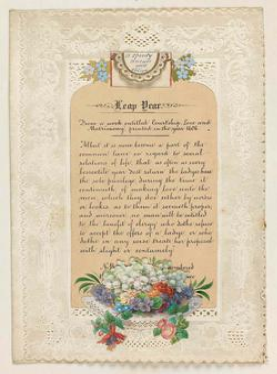 Leap Year
From a work entitled Courtship Love and
Matrimony printed in the year 1606.
"Albeit it is now become a part of the
common lawe in regard to social
relations of life, that as often as every
bissextile year dost return the ladyes have
the sole privilege during the time it
continueth of making love unto the
men, which they doe either by wordes
or lookes as to them it seemeth proper;
and moreover no man will be entitled
to the benefit of clergy who dothe refuse
to accept the offers of a ladye or who
dothe in any wise treate her proposal
with slight or contumely."